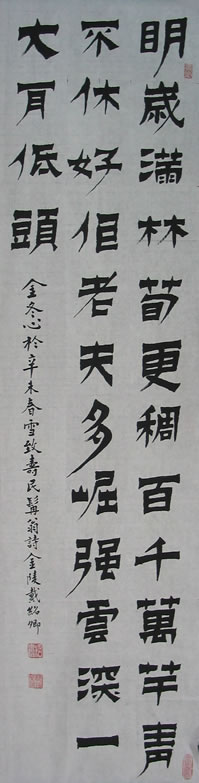 眀歲滿林荀更稠百千萬芉青
不休好佀老夫多崛强雲深一
丈肎低頭
金冬心於辛未春雪致壽民髯翁詩金陵戴紹卿